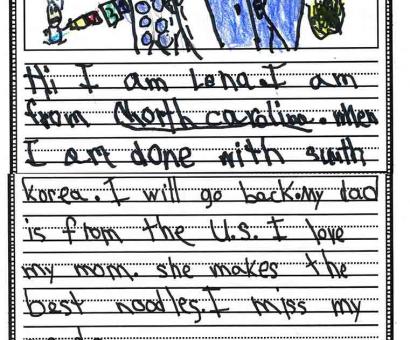 Hi I am Lena. I am
from North carolina. when
I am done with south
korea. I will go back. My dad
is from the U.S. I love
my mom. she makes the
best noodles. I miss my